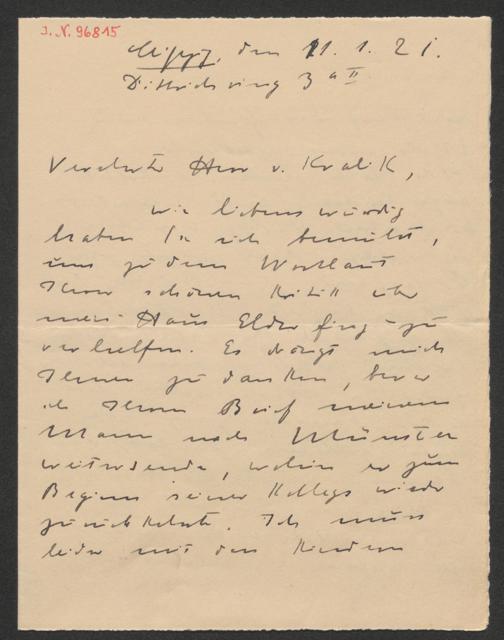 J. N. 96815
Leipzig, den 11. 1. 21.
Dittrichring 3 a II
Verehrter Herr v. Kralik,
wie liebenswürdig
haben Sie sich bemüht,
uns zu dem Wortlaut
Ihrer schönen Kritik über
mein Haus Elderfing zu
verhelfen. Es drängt mich
Ihnen zu danken, bevor
ich Ihren Brief meinem
Mann nach Münster
weitersende, wohin er zum
Beginn seiner Kollegs wieder
zurückkehrte. Ich muss
leider mit den Kindern